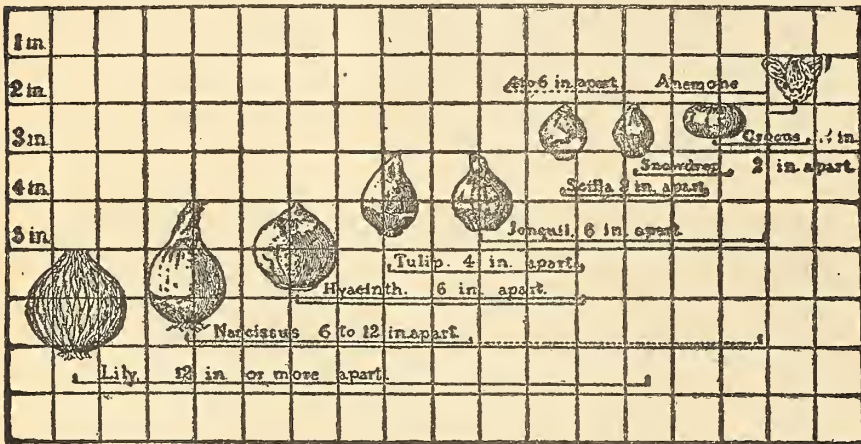 1 in.
2 in.
4 to 6 in. apart Anemone
3 in.
Crocus in
Snowdrop 2 in. apart
4 in.
Scilla 2 in. apart
5 in.
Jonquil, 6 in. apart
Tulip. 4 in. apart
Hyacinth. 6 in. apart.
Narcissus 6 to 12 in. apart
Lily. 12 in or more apart.